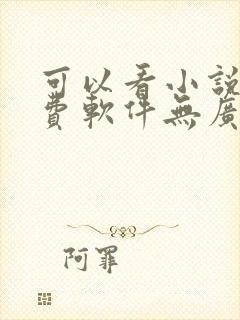 可以看小說
費軟件無廣
阿罪